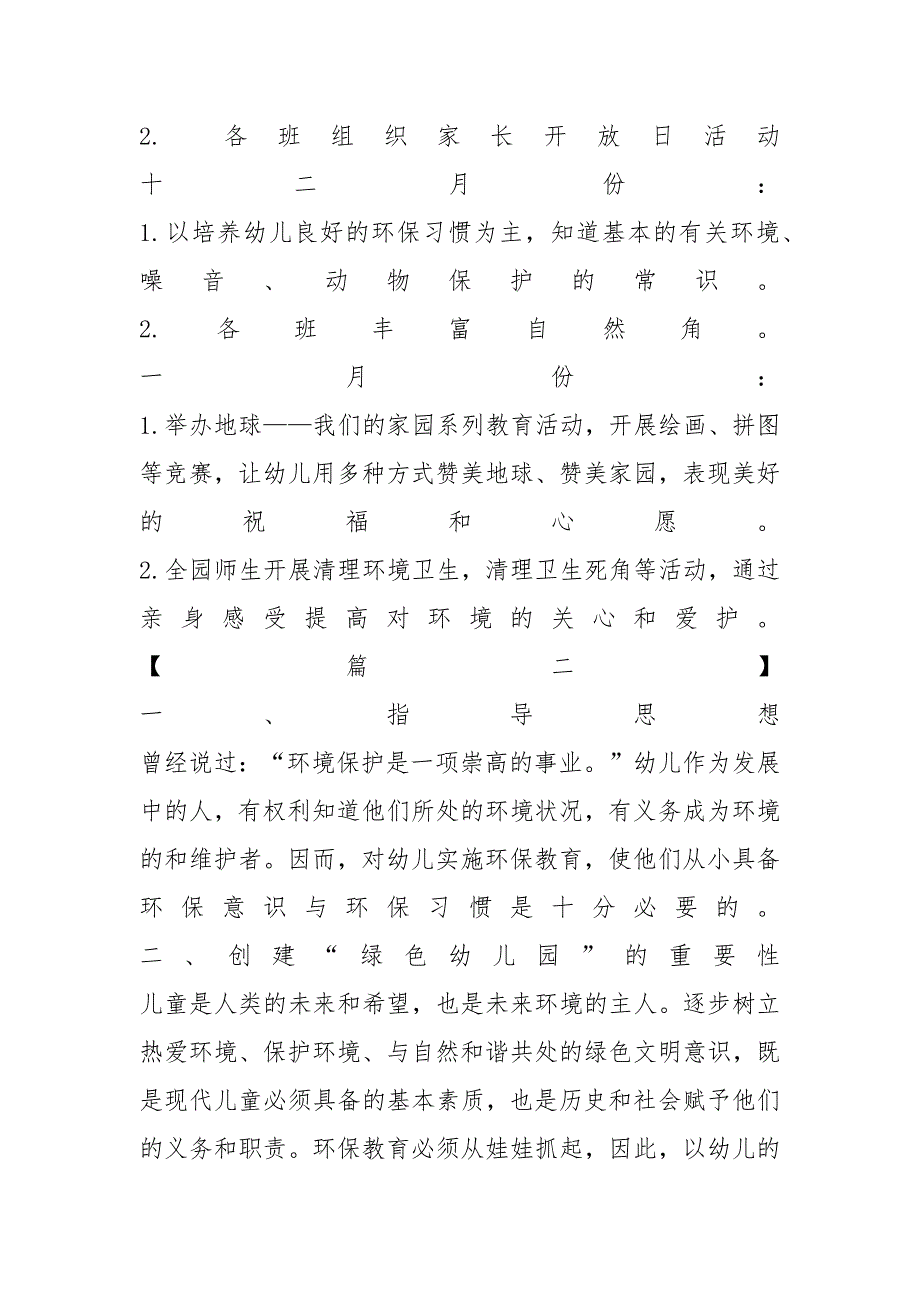 2. 各班组织家长开放日活动
十二月份：
1.以培养幼儿良好的环保习惯为主，知道基本的有关环境、
噪音、动物保护的常识。
2.各班丰富自然角。
一月份：
1.举办地球——我们的家园系列教育活动，开展绘画、拼图
等竞赛，让幼儿用多种方式赞美地球、赞美家园，表现美好
的祝福和心愿。
2.全园师生开展清理环境卫生，清理卫生死角等活动，通过
亲身感受提高对环境的关心和爱护。
【篇二】
一、指导思想
曾经说过：“环境保护是一项崇高的事业。”幼儿作为发展
中的人，有权利知道他们所处的环境状况，有义务成为环境
的和维护者。因而，对幼儿实施环保教育，使他们从小具备
环保意识与环保习惯是十分必要的。
二、创建“绿色幼儿园”的重要性
儿童是人类的未来和希望，也是未来环境的主人。逐步树立
热爱环境、保护环境、与自然和谐共处的绿色文明意识，既
是现代儿童必须具备的基本素质，也是历史和社会赋予他们
的义务和职责。环保教育必须从娃娃抓起，因此，以幼儿的